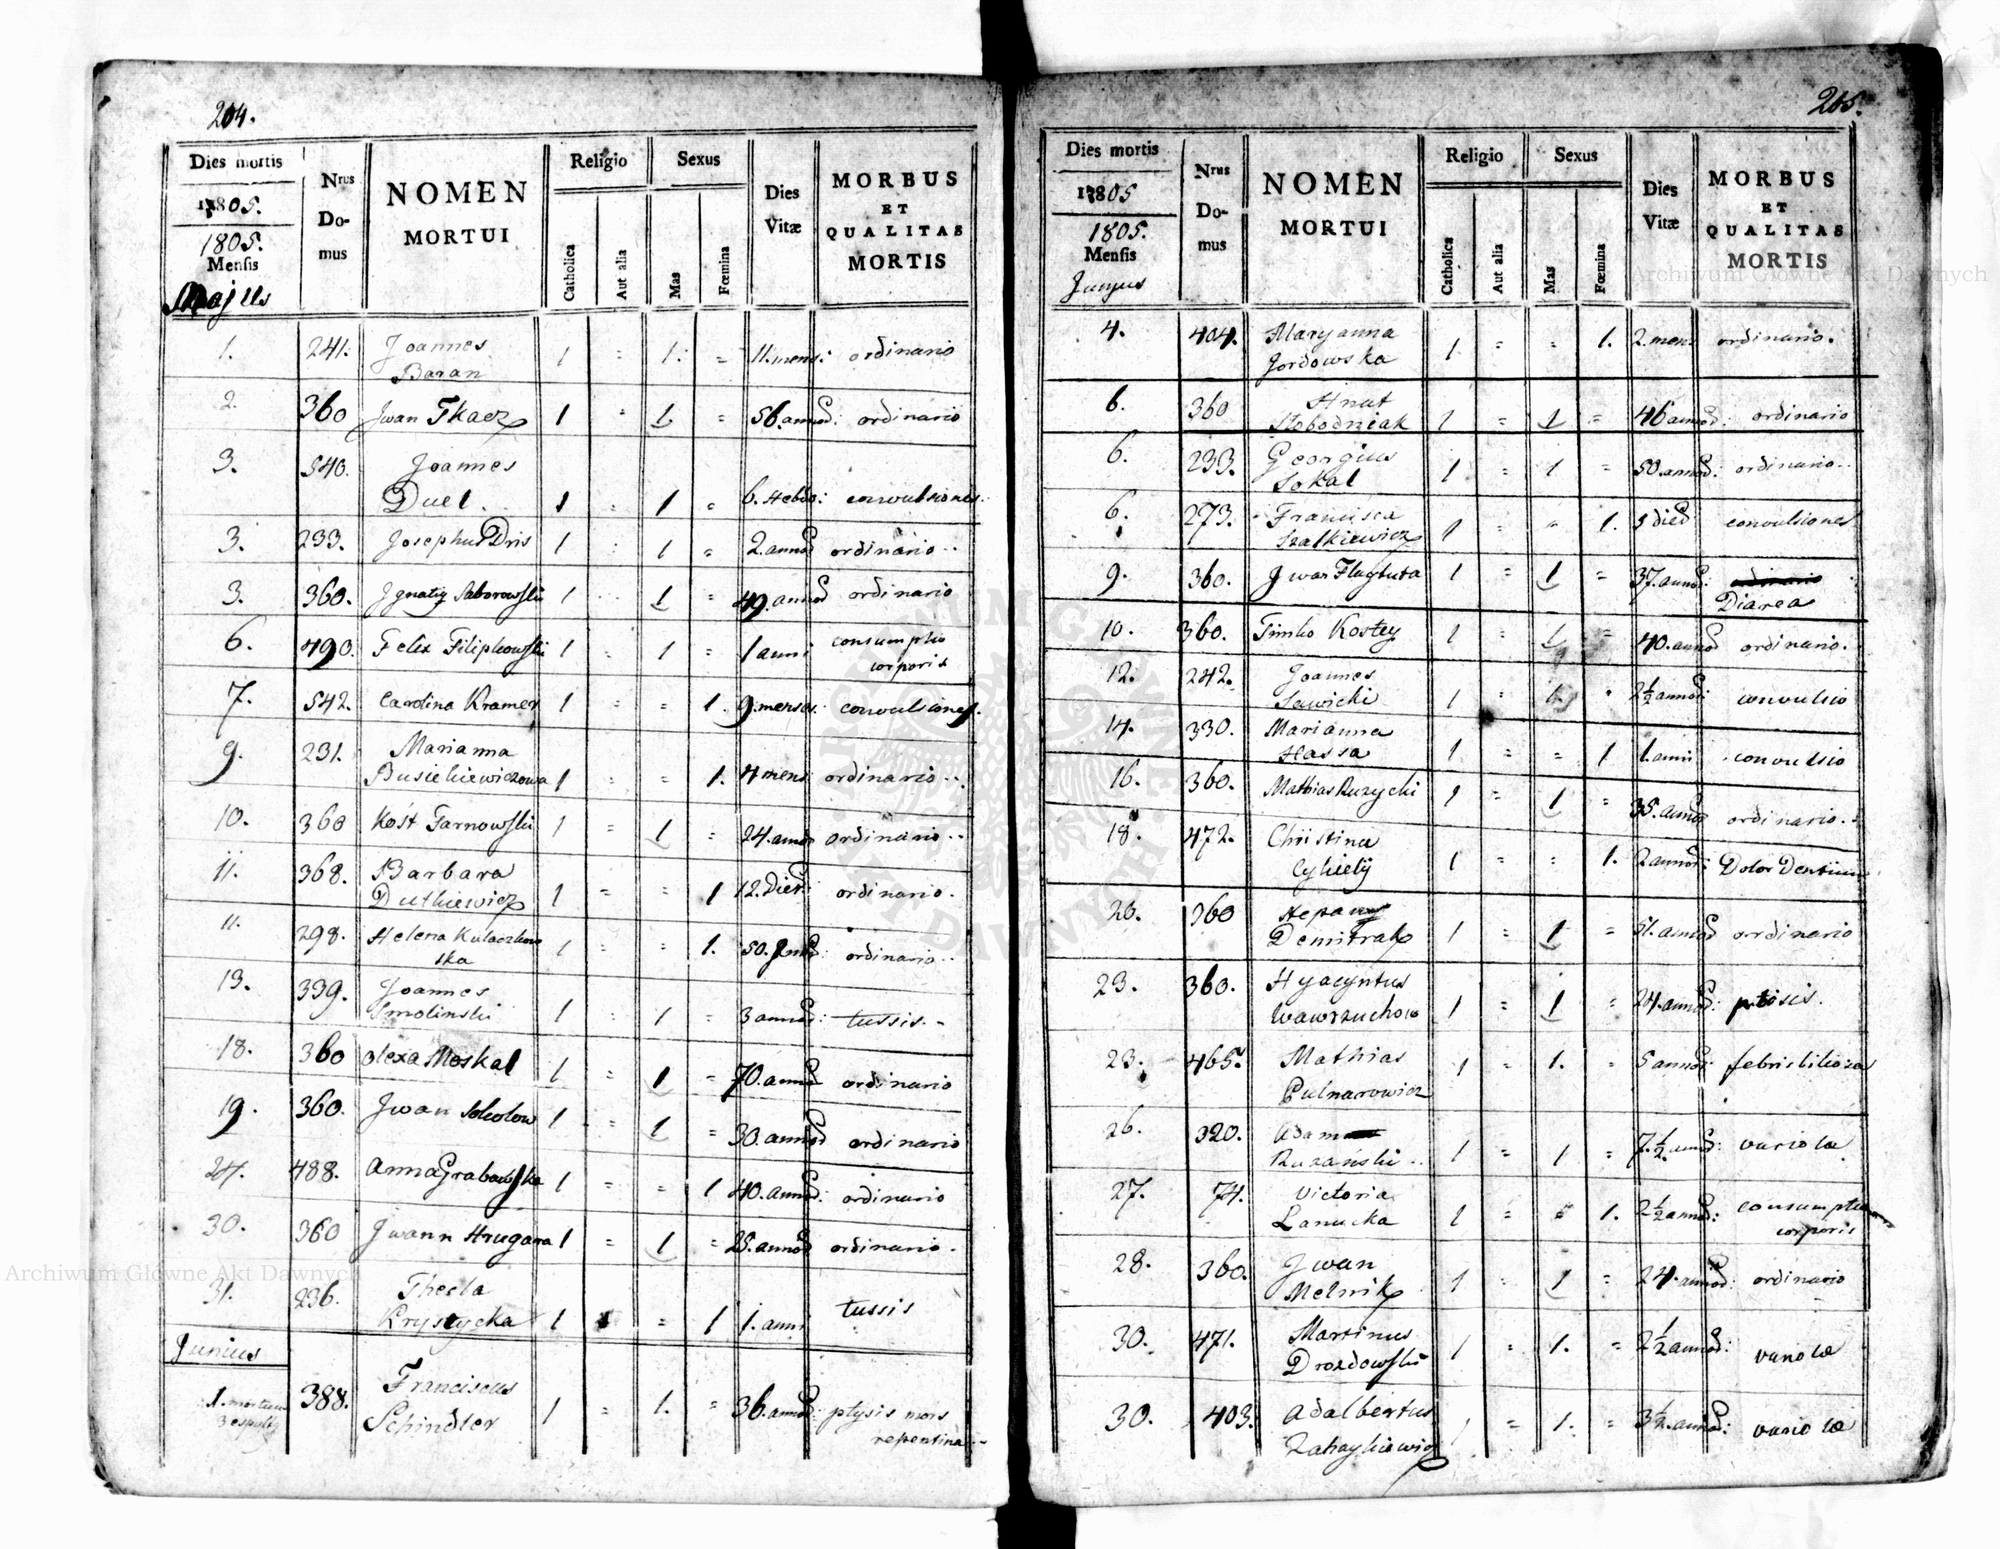 204.
Dies mortis
1805.
1805.
Mensis
Majus
Nrus
Do-
mus
NOMEN
MORTUI
Religio
Catholica
Aut alia
Sexus
Mas
Fœmina
Dies
Vitæ
MORBUS
ET
QUALITAS
MORTIS
1. 241. Joannes
Baran 1 = 1. = 11. mens: ordinario
2. 360 Jwan Tkacz 1 = 1 = 56. annoȓ: ordinario
3. 540. Joannes
Duel. 1 : 1 = 6. Hebdo: convulsiones.
3. 233. Josephus Dris 1 : 1 = 2. annoȓ ordinario..
3. 360. Jgnatiy Saborowski 1 : 1 = 49. annoȓ ordinario
6. 490. Felix Filipkowski 1 : 1 = 1 anni consumptio
corporis
7. 542. Carolina Kramer 1 = = 1. 9. menses. convulsiones.
9. 231. Marianna
Busiekiewiczowa 1 = = 1. 4 mens ordinario..
10. 360 Kost Tarnowski 1 = 1 = 24. annoȓ ordinario..
11. 368. Barbara
Dutkiewicz 1 = = 1 12. Dier: ordinario.
11. 298. Helena Kulaczkow
ska 1 = = 1. 50. ordinario..
13. 339. Joannes
Smolinski 1 : 1 = 3 annoȓ: tussis.-
18. 360 Olexa Moskal 1 = 1 = 70. annoȓ ordinario
19. 360. Jwan Sokolow 1 : 1 = 30. annoȓ ordinario
27. 488. Anna Grabowska 1 = = 1 40. annoȓ: ordinario
30. 360 Jwann Hrugara 1 = 1 = 25. annoȓ ordinario.
31. 236. Thecla
Krystycka 1 = 1 1. anni tussis
Junius
1. mortuus
3 sepult 388. Franciscus
Schindler 1 = 1. = 36. annoȓ: ptysis mors
repentina..
205.
Dies mortis
1805
1805.
Mensis
Junyus
Nrus
Do-
mus
NOMEN
MORTUI
Religio
Catholica
Aut alia
Sexus
Mas
Fœmina
Dies
Vitæ
MORBUS
ET
QUALITAS
MORTIS
4. 404. Maryanna
Jordowska 1 = = 1. 2. mens ordinario.
6. 360 Hnat
Slobodniak 1 = 1 = 46 annoȓ: ordinario
6. 233. Georgius
Sokal 1 = 1 = 50. annoȓ: ordinario..
6. 273. Francisca
Szalkiewicz 1 = = 1. dieȓ convulsiones
9. 360. Jwan 1 = 1 = 37. annoȓ: ordinario
Diarea
10. 360. Timko Kostey 1 = 1 = 40. annoȓ ordinario.
12. 242. Joannes
Sawicki 1 = 1. 2½ annoȓ: convulsio
14. 330. Marianna
Hassa 1 = = 1 1. anni convulsio
16. 360. Mathias Ruzycki 1 = 1 = 35. annoȓ ordinario..
18. 472. Christina
1 = : 1. 2 annoȓ: Dolor Dentium
20. 360
Demitrak 1 = 1 = 51. annoȓ ordinario
23. 360. Hyacyntus
Wawrzuchow 1 = 1 = 24. annoȓ: ptisis.
23. 465. Mathias
Pulnarowicz 1 = 1. = 5 annoȓ: febris bilioza
26. 320. Adam
Ruzański.. 1 = 1 = 7. ½ annoȓ: variolæ
27. 74. Victoria
Lanucka 1 = = 1. 2½ annoȓ: consumptio
corporis
28. 360. Jwan
Melnik 1 = 1 = 24. annoȓ: ordinario
30. 471. Martinus
Drozdowski 1 = 1. = 2½ annoȓ: variolæ
30. 403. Adalbertus
Zahaykiewicz 1 = 1. = 3½ annoȓ: variolæ
Archiwum Główne Akt Dawnych
Archiwum Główne Akt Dawnych
ARCHIWUM GŁÓWNE AKT DAWNYCH